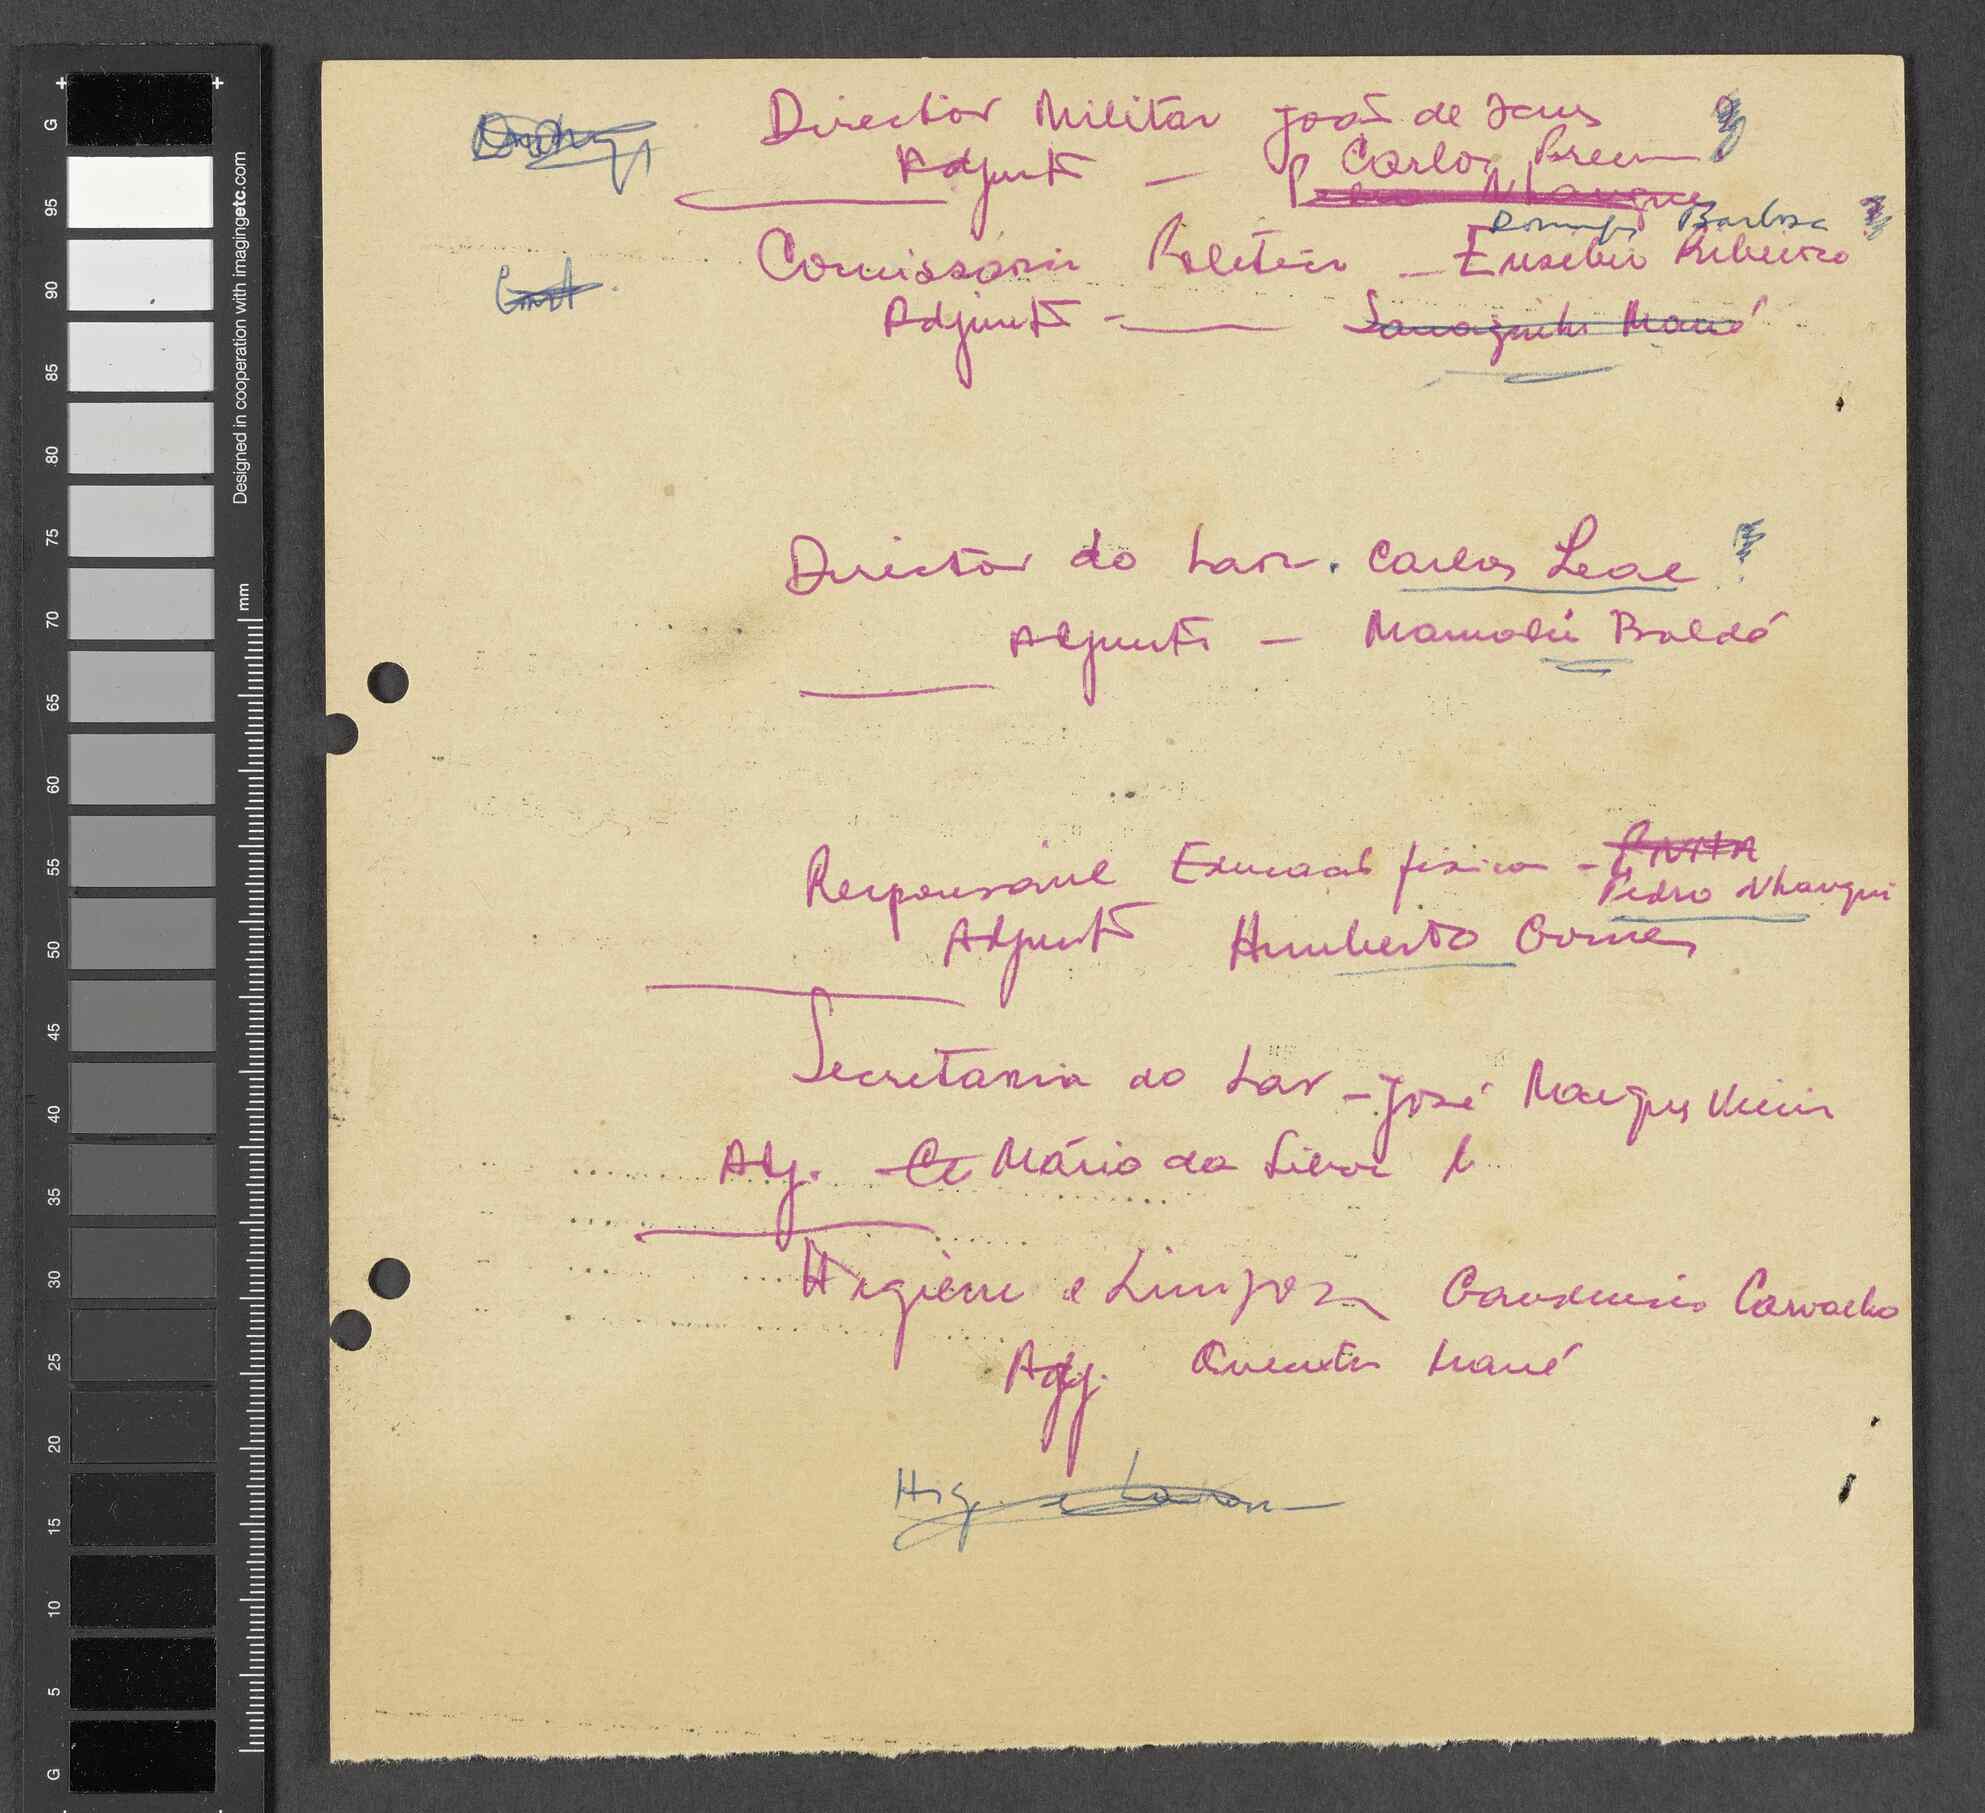 Director Militar João de Jesus
Adjunto - Carlos
Domingos Barbosa
Comissário Político - Eusébio Ribeiro
Adjunto - Mané
Director do Lar. Carlos Leal
Adjunto - Mamadú Baldé
Responsável Educação física -
Pedro Nhangui
Adjunto Humberto Gomes
Secretaria do Lar - José Marques Vieira
Adj. Mário da Silva
Higiene e Limpeza Gaudêncio Carvalho
Adj. Quenta Mané
Hig. e
Designed in cooperation with imagingetc.com
mm
G
95
90
85
80
75
70
65
60
55
50
45
40
35
30
25
20
15
10
5
G